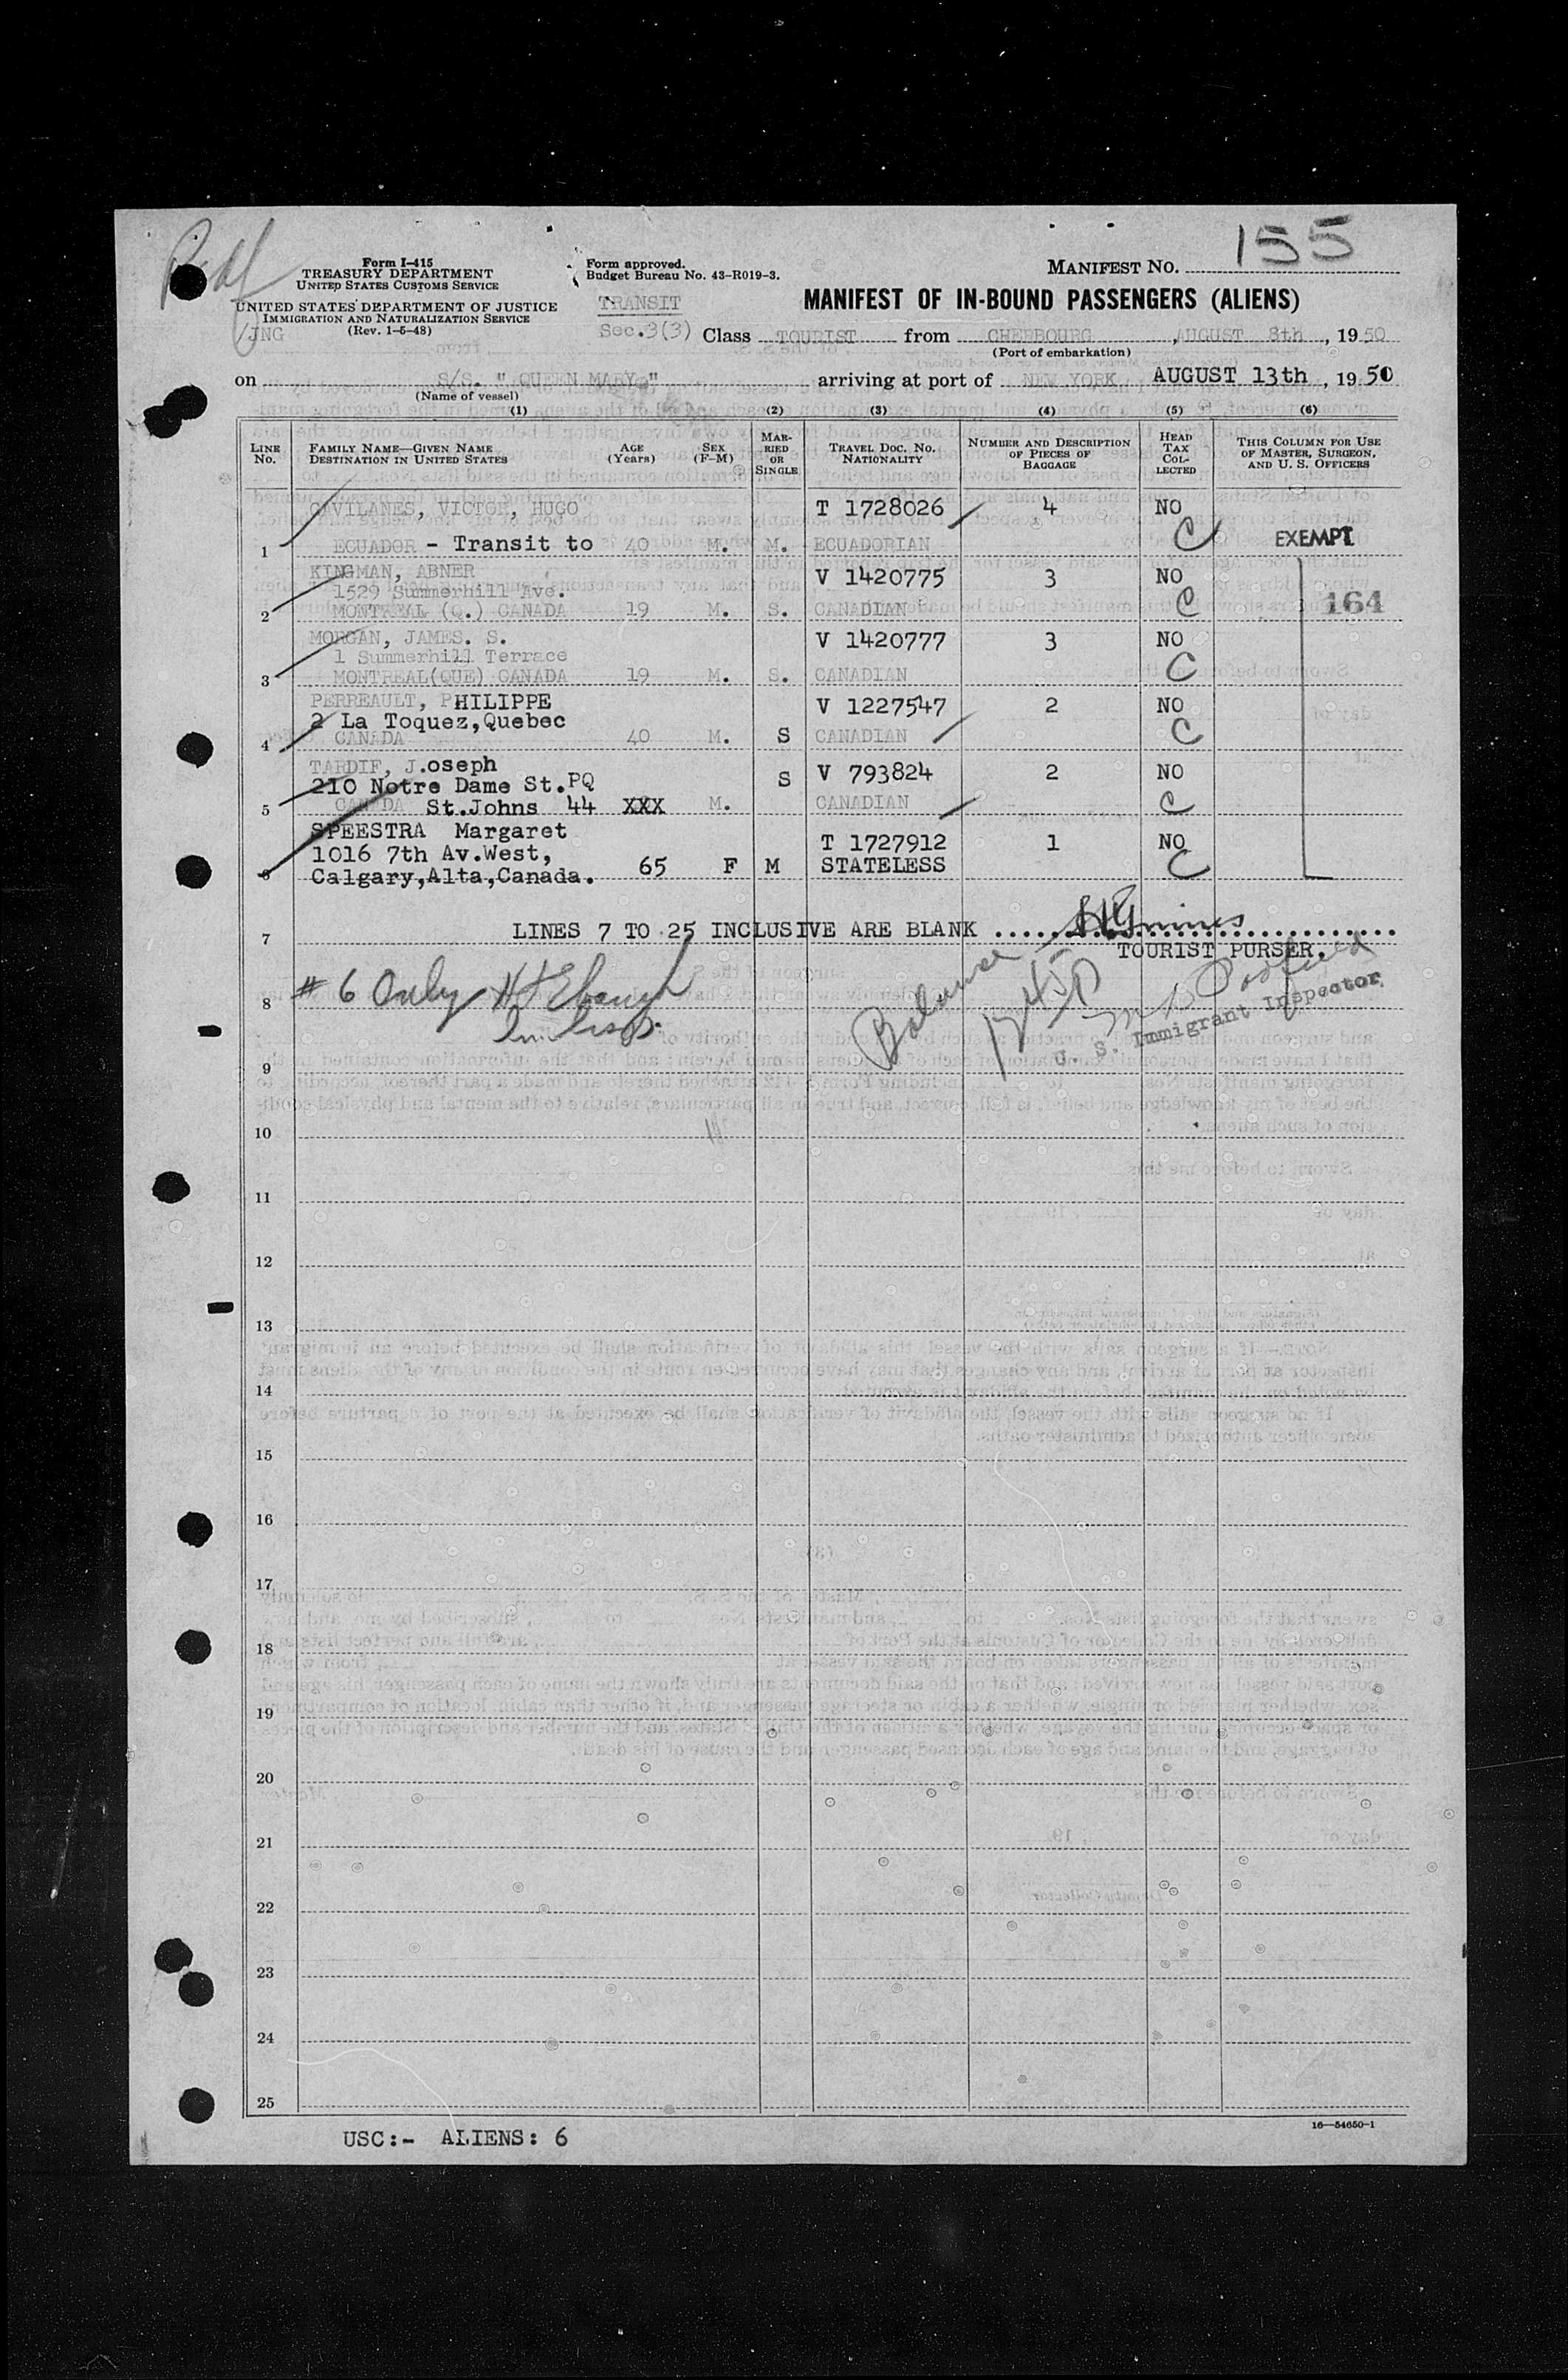 155
Form I-415
TREASURY DEPARTMENT
UNITED STATES CUSTOMS SERVICE
UNITED STATES DEPARTMENT OF JUSTICE
IMMIGRATION AND NATURALIZATION SERVICE
(Rev. 1-5-48)
/JNG
Form approved.
Budget Bureau No. 43-R019-3.
MANIFEST NO.
TRANSIT
Sec.3(3)
MANIFEST OF IN-BOUND PASSENGERS (ALIENS)
Class TOURIST from CHERBOURG, AUGUST 8th, 1950
(Port of embarkation)
on S/S. " QUEEN MARY " arriving at port of NEW YORK, AUGUST 13th, 1950
(Name of vessel)
(1) (2) (3) (4) (5) (6)
LINE No. FAMILY NAME—GIVEN NAME DESTINATION IN UNITED STATES AGE (Years) SEX (F-M) MARRIED OR SINGLE TRAVEL DOC. NO. NATIONALITY NUMBER AND DESCRIPTION OF PIECES OF BAGGAGE HEAD TAX COLLECTED THIS COLUMN FOR USE OF MASTER, SURGEON, AND U. S. OFFICERS
GAVILANES, VICTOR, HUGO T 1728026 4 NO
1 ECUADOR - Transit to 40 M. M. ECUADORIAN C EXEMPT
KINGMAN, ABNER V 1420775 3 NO
1529 Summerhill Ave.
2 MONTREAL (Q.) CANADA 19 M. S. CANADIAN C 164
MORGAN, JAMES. S. V 1420777 3 NO
1 Summerhill Terrace
3 MONTREAL(QUE) CANADA 19 M. S. CANADIAN C
PERREAULT, PHILIPPE V 1227547 2 NO
2 La Toquez,Quebec
4 CANADA 40 M. S CANADIAN C
TARDIF, J.oseph
210 Notre Dame St.PQ S V 793824 2 NO
5 CANADA St.Johns 44 XXX M. CANADIAN C
SPEESTRA Margaret
1016 7th Av.West, T 1727912 1 NO
6 Calgary,Alta,Canada. 65 F M STATELESS C
7 LINES 7 TO 25 INCLUSIVE ARE BLANK
TOURIST PURSER.
8 # 6 Only
Balance
U. S. Immigrant Inspector
9
10
11
12
13
14
15
16
17
18
19
20
21
22
23
24
25
USC:- ALIENS: 6
16—54650-1